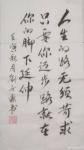 人生的路无须苛求
只要你迈步路就在
你的脚下延伸